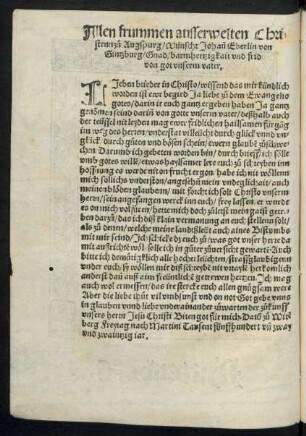 Allen frummen ausserwelten Chri
sten zů Augspurg / Wünscht Johañ Eberlin von
Güntzburg / Gnad / barmhertzigkait vnd frid
von got vnserm vater.
Lieben brüeder in Christo / wissend das mir kündlich
worden ist ewr begird ja liebe zů dem Ewangelio
gotes / darin ir euch gantz ergeben haben Ja gantz
genomen seind darin von gott vnserm vater / deßhalb auch
der teüffel nit leyden mag ewr fridlichen hailsamen fürgãg
im weg des herren / vnderstat villeicht durch glück vnnd vn
glück / durch güten vnd bösen schein / ewern glaubẽ zůschwe
chen Darumb ich gebeten worden bin / durch brieff / ich sölle
vmb gotes willẽ / etwas haylsamer lere euch zů schreyben inn
hoffnung es werde nit on frucht ergeen / hab ich nit wöllen
mich sollichs
meinen blöden glauben / mit forcht ich solt Christo vnserm
herren / sein angefangen werck inn euch /
es on mich volfüren / hette mich doch zůletst mein gaist
ben darzů / das ich diß klain vermanung an euch stellen solt /
als zů denen / welche meine landtsleüt auch aines Bistumbs
mit mir seind / Ich schick ds euch zů was got vnser herre da
mit außrichtẽ wöl solle ich in gůter zůuersicht gewarten Auch
bitte ich demütigklich alle hocherleüchten / straffglaubigen
vnder euch / sy wöllen mit diß schreybẽ nit
sonder das auß ains freüntlich getrewen herzen. Ich mag
auch wol ermessen / das ir sterck euch allen gnůgsam wer
Aber die liebe thůt vil vmbsunst vnd on not Got gebe vnns
in glauben vnnd liebe ainander zůwarten der zůkunfft
vnsers herren Jesu Christi Biten got für mich Datũ zů Wit
berg Freytag nach Martini Tausent fünffhundert vñ zway
vnd zwaintzig iar.